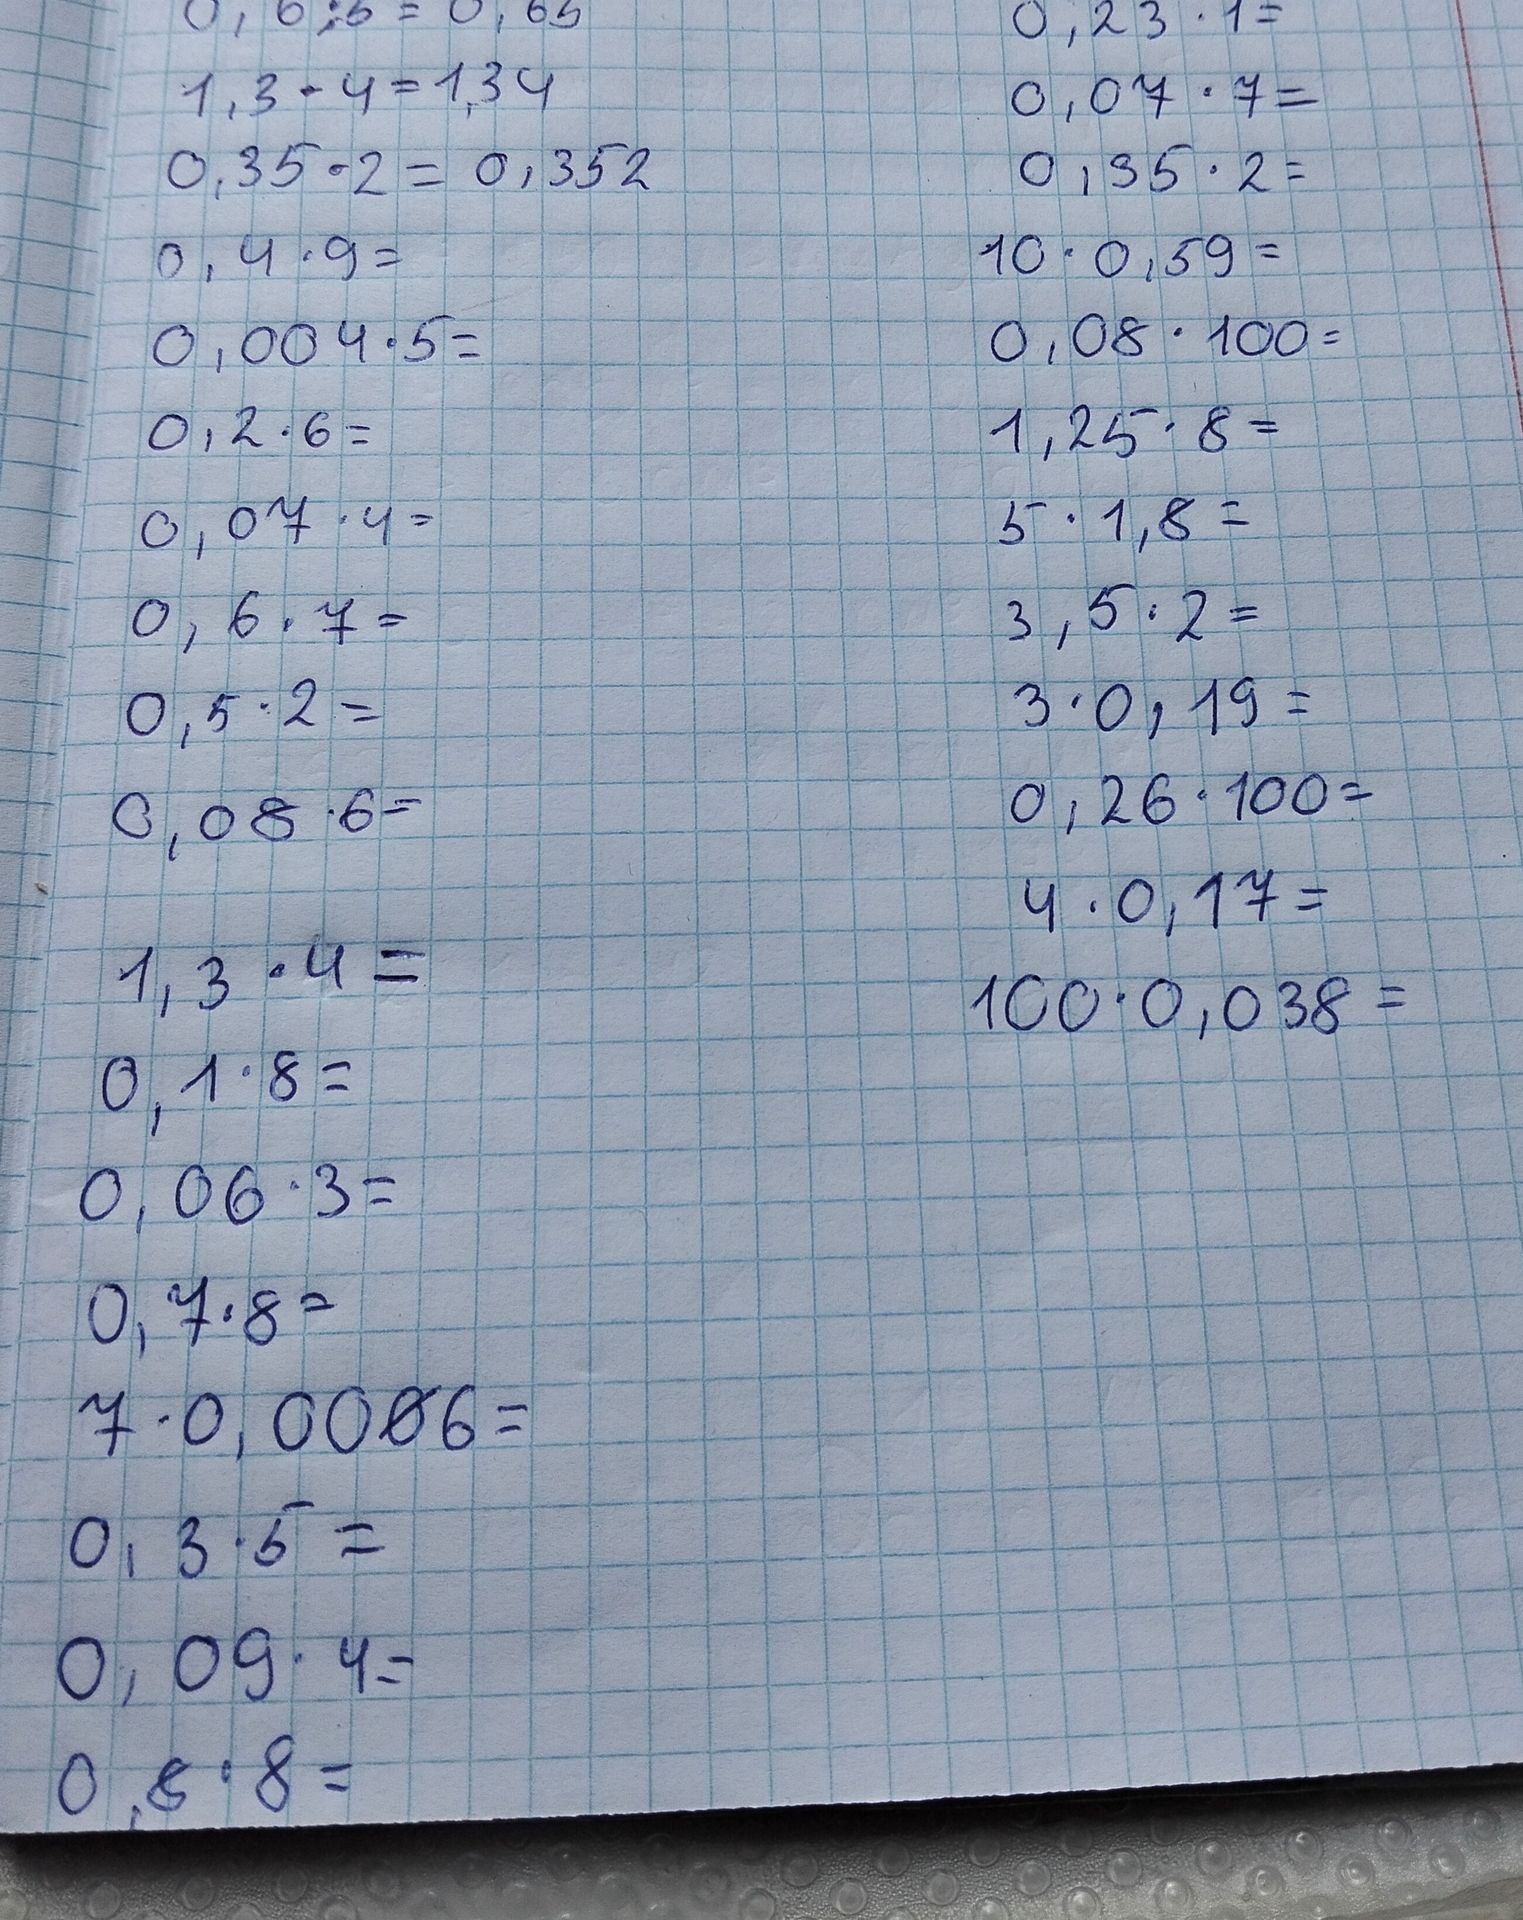 1,3 · 4 = 1,34
0,35 · 2 = 0,352
0,4 · 9 =
0,004 · 5 =
0,2 · 6 =
0,07 · 4 =
0,6 · 7 =
0,5 · 2 =
0,08 · 6 =
1,3 · 4 =
0,1 · 8 =
0,06 · 3 =
0,7 · 8 =
7 · 0,0006 =
0,3 · 5 =
0,09 · 4 =
0,8 · 8 =
0,23 · 1 =
0,07 · 7 =
0,35 · 2 =
10 · 0,59 =
0,08 · 100 =
1,25 · 8 =
5 · 1,8 =
3,5 · 2 =
3 · 0,19 =
0,26 · 100 =
4 · 0,17 =
100 · 0,038 =